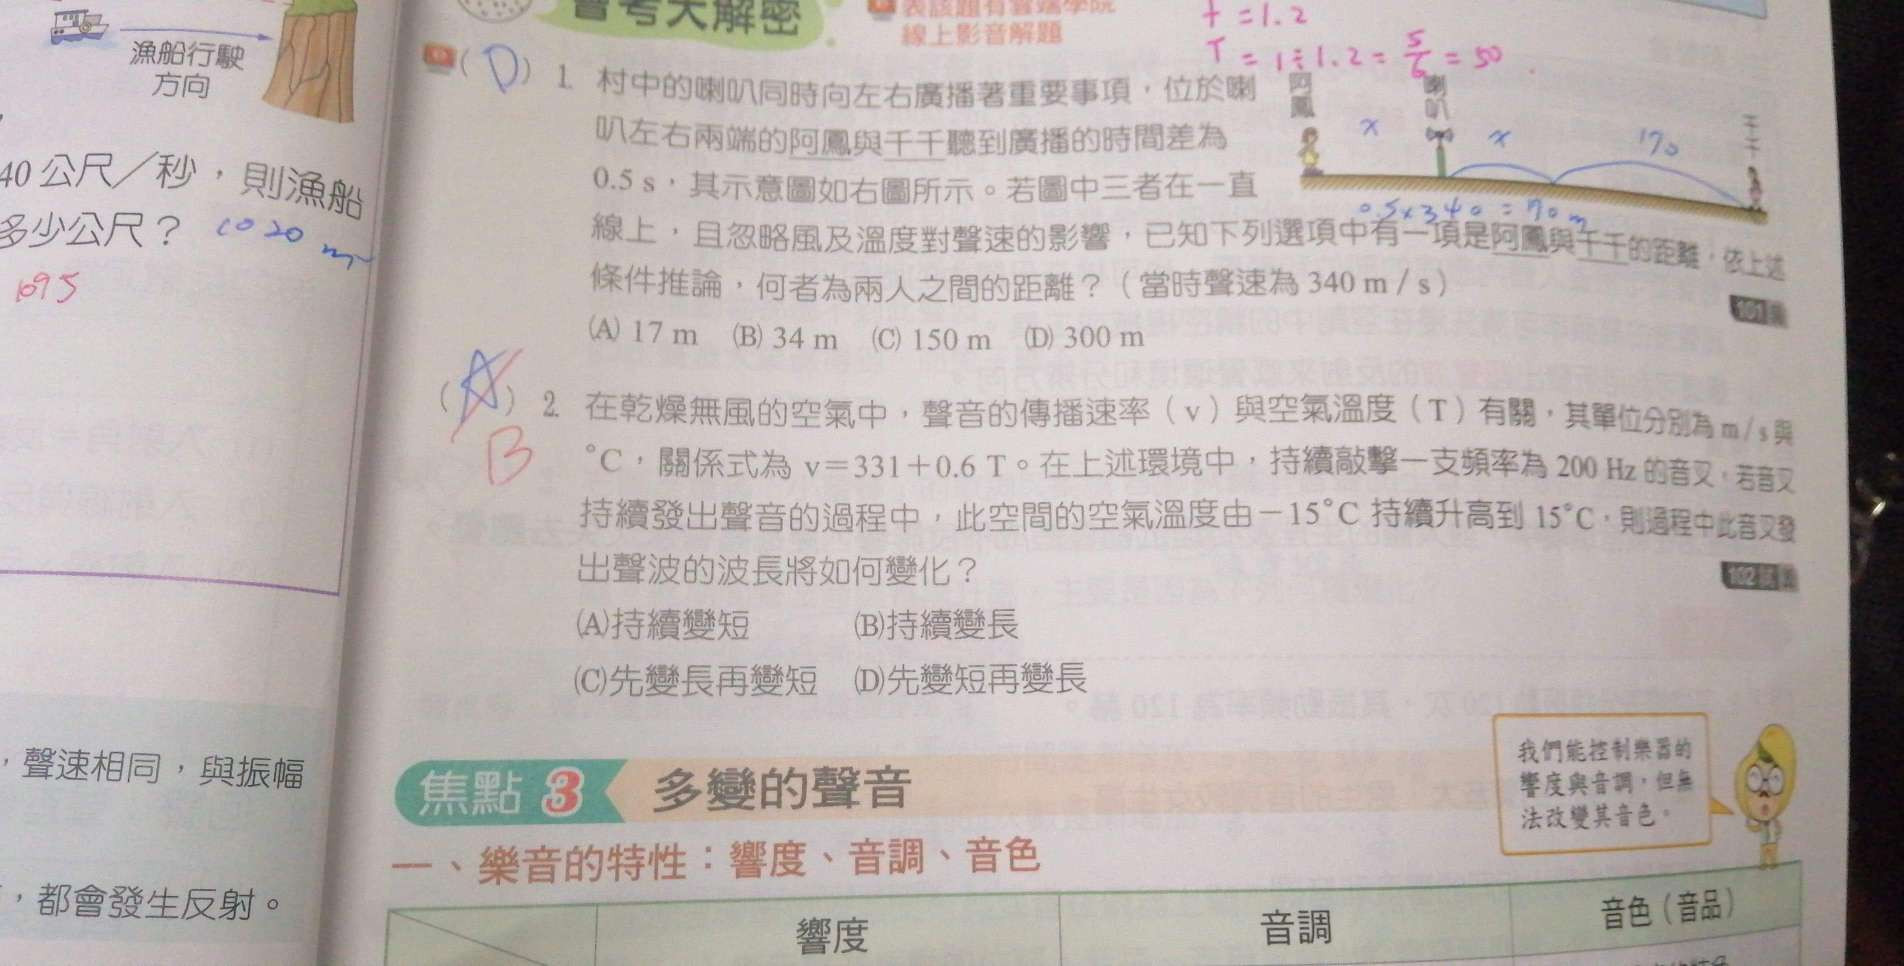 漁船行駛
方向
40 公尺／秒，則漁船
多少公尺？ 1020 m
1695
，聲速相同，與振幅
，都會發生反射。
會考大解密
線上影音解題
t = 1.2
T = 1÷1.2 = 5/6 = 50
(D) 1. 村中的喇叭同時向左右廣播著重要事項，位於喇
叭左右兩端的阿鳳與千千聽到廣播的時間差為
0.5 s，其示意圖如右圖所示。若圖中三者在一直
線上，且忽略風及溫度對聲速的影響，已知下列選項中有一項是阿鳳與千千的距離，依上述
條件推論，何者為兩人之間的距離？（當時聲速為 340 m / s）
(A) 17 m (B) 34 m (C) 150 m (D) 300 m
阿鳳
喇叭
千千
x x 170
101
(A) 2. 在乾燥無風的空氣中，聲音的傳播速率（v）與空氣溫度（T）有關，其單位分別為 m / s 與
B
°C，關係式為 v＝331＋0.6 T。在上述環境中，持續敲擊一支頻率為 200 Hz 的音叉，若音叉
持續發出聲音的過程中，此空間的空氣溫度由－15°C 持續升高到 15°C，則過程中此音叉發
出聲波的波長將如何變化？
102
(A)持續變短 (B)持續變長
(C)先變長再變短 (D)先變短再變長
焦點 3 多變的聲音
我們能控制樂器的
響度與音調，但無
法改變其音色。
一、樂音的特性：響度、音調、音色
響度 音調 音色（音品）